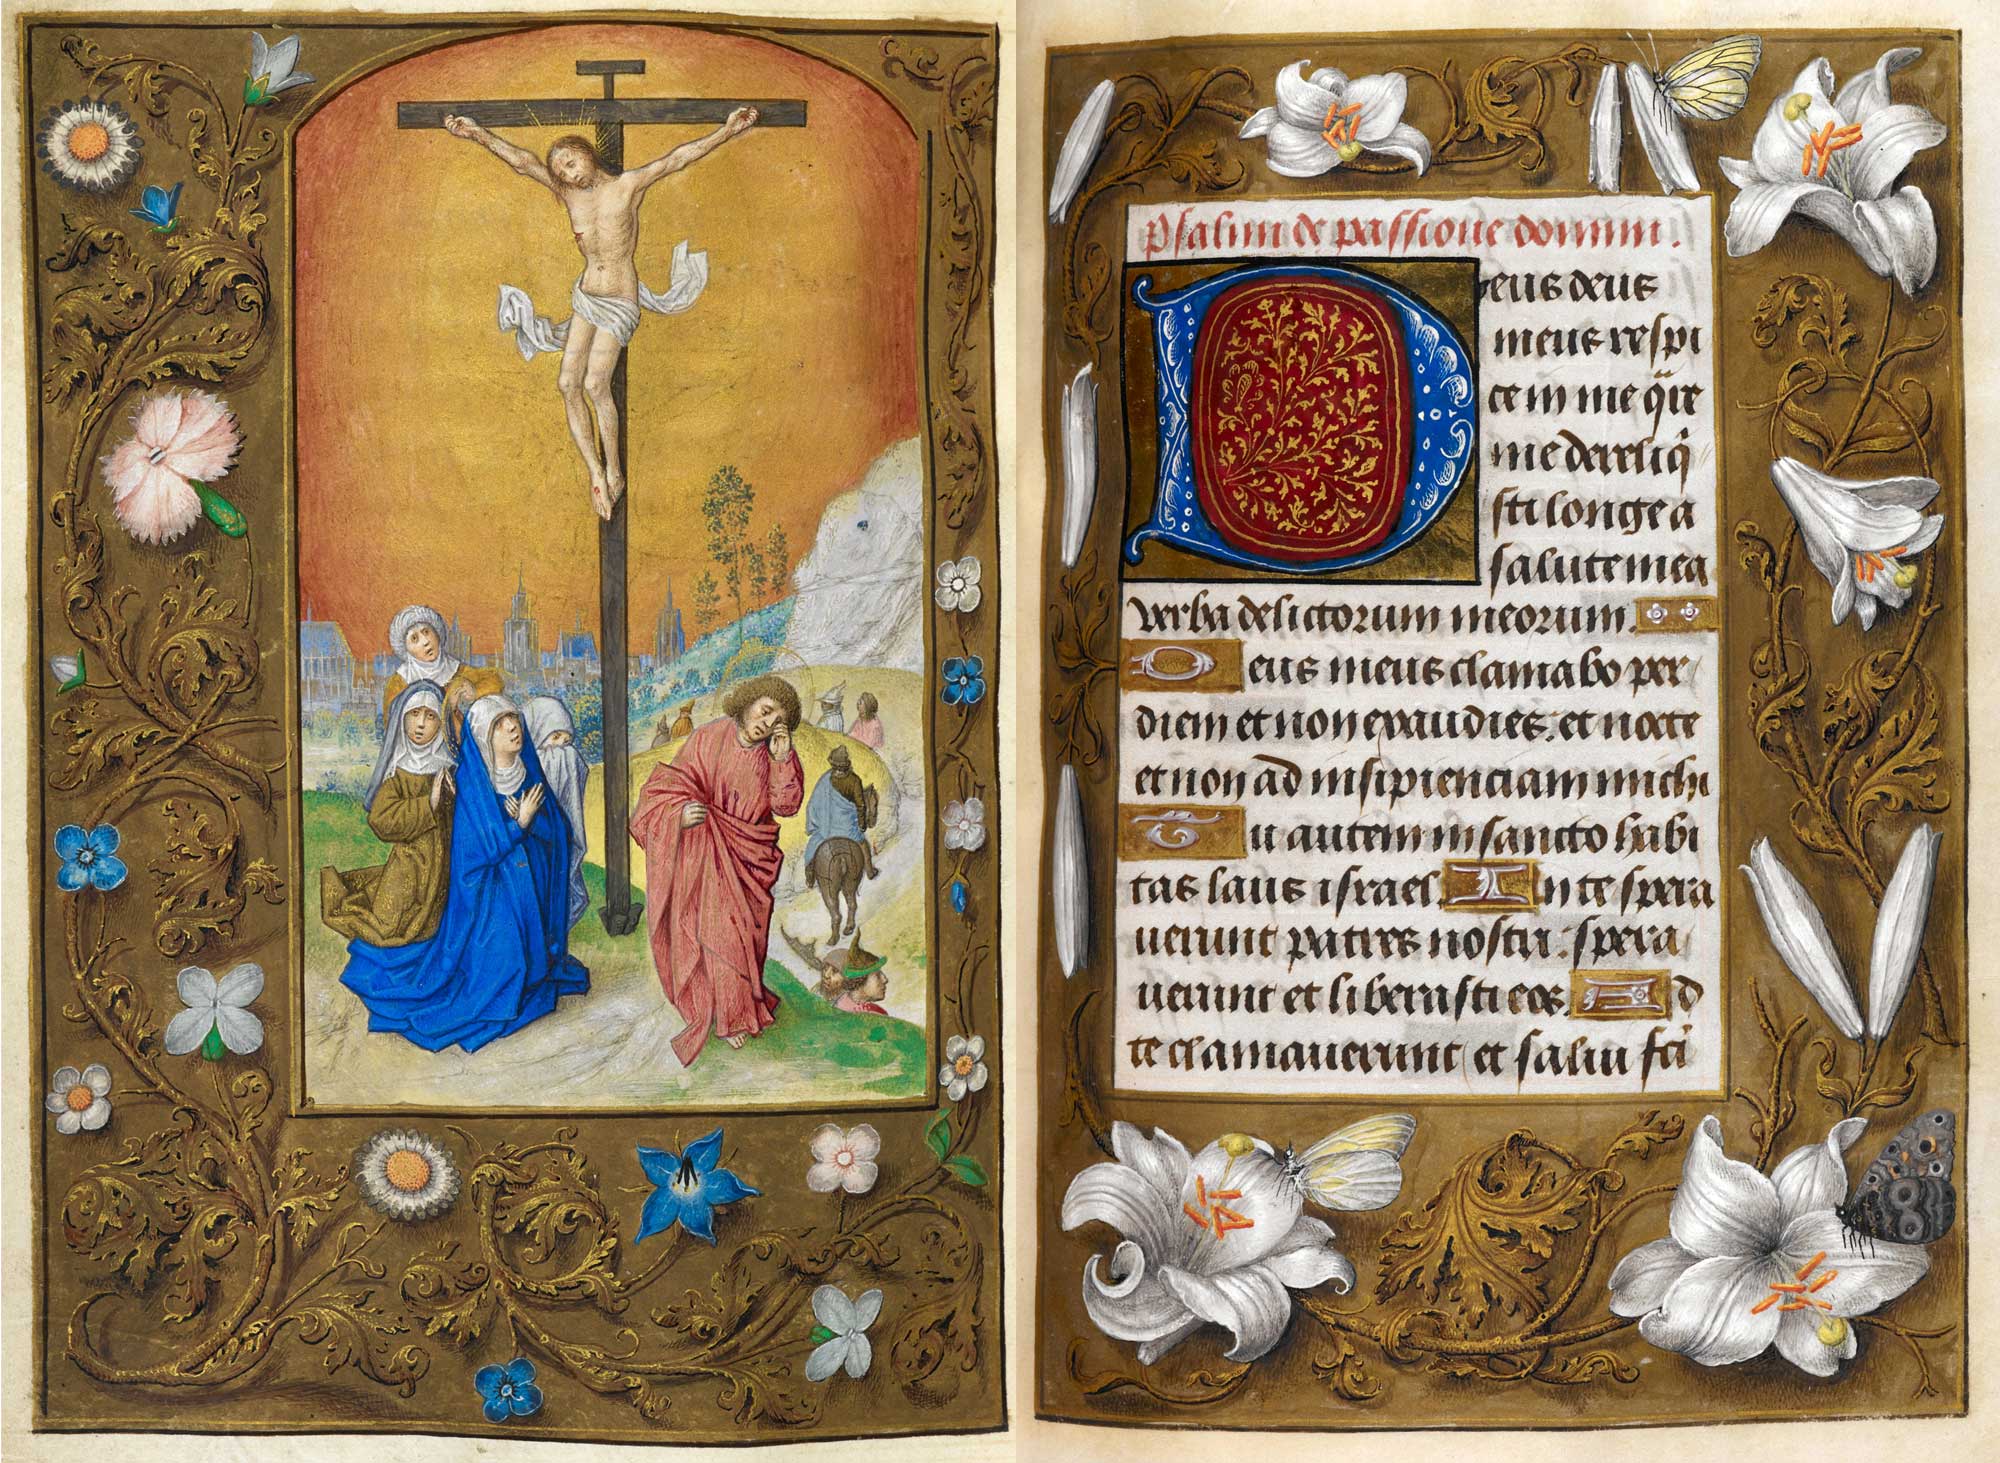 Psalmi de passione domini.
Deus deus
meus respi
ce in me qͣre
me dereliqͥ
sti longe a
salute mea
verba delictorum meorum.
Deus meus clamabo per
diem et non exaudies: et nocte
et non ad insipienciam michi
Tu autem in sancto habi
tas laus israel. In te spera
uerunt patres nostri: spera
uerunt et liberasti eos. Ad
te clamauerunt et salui fcī